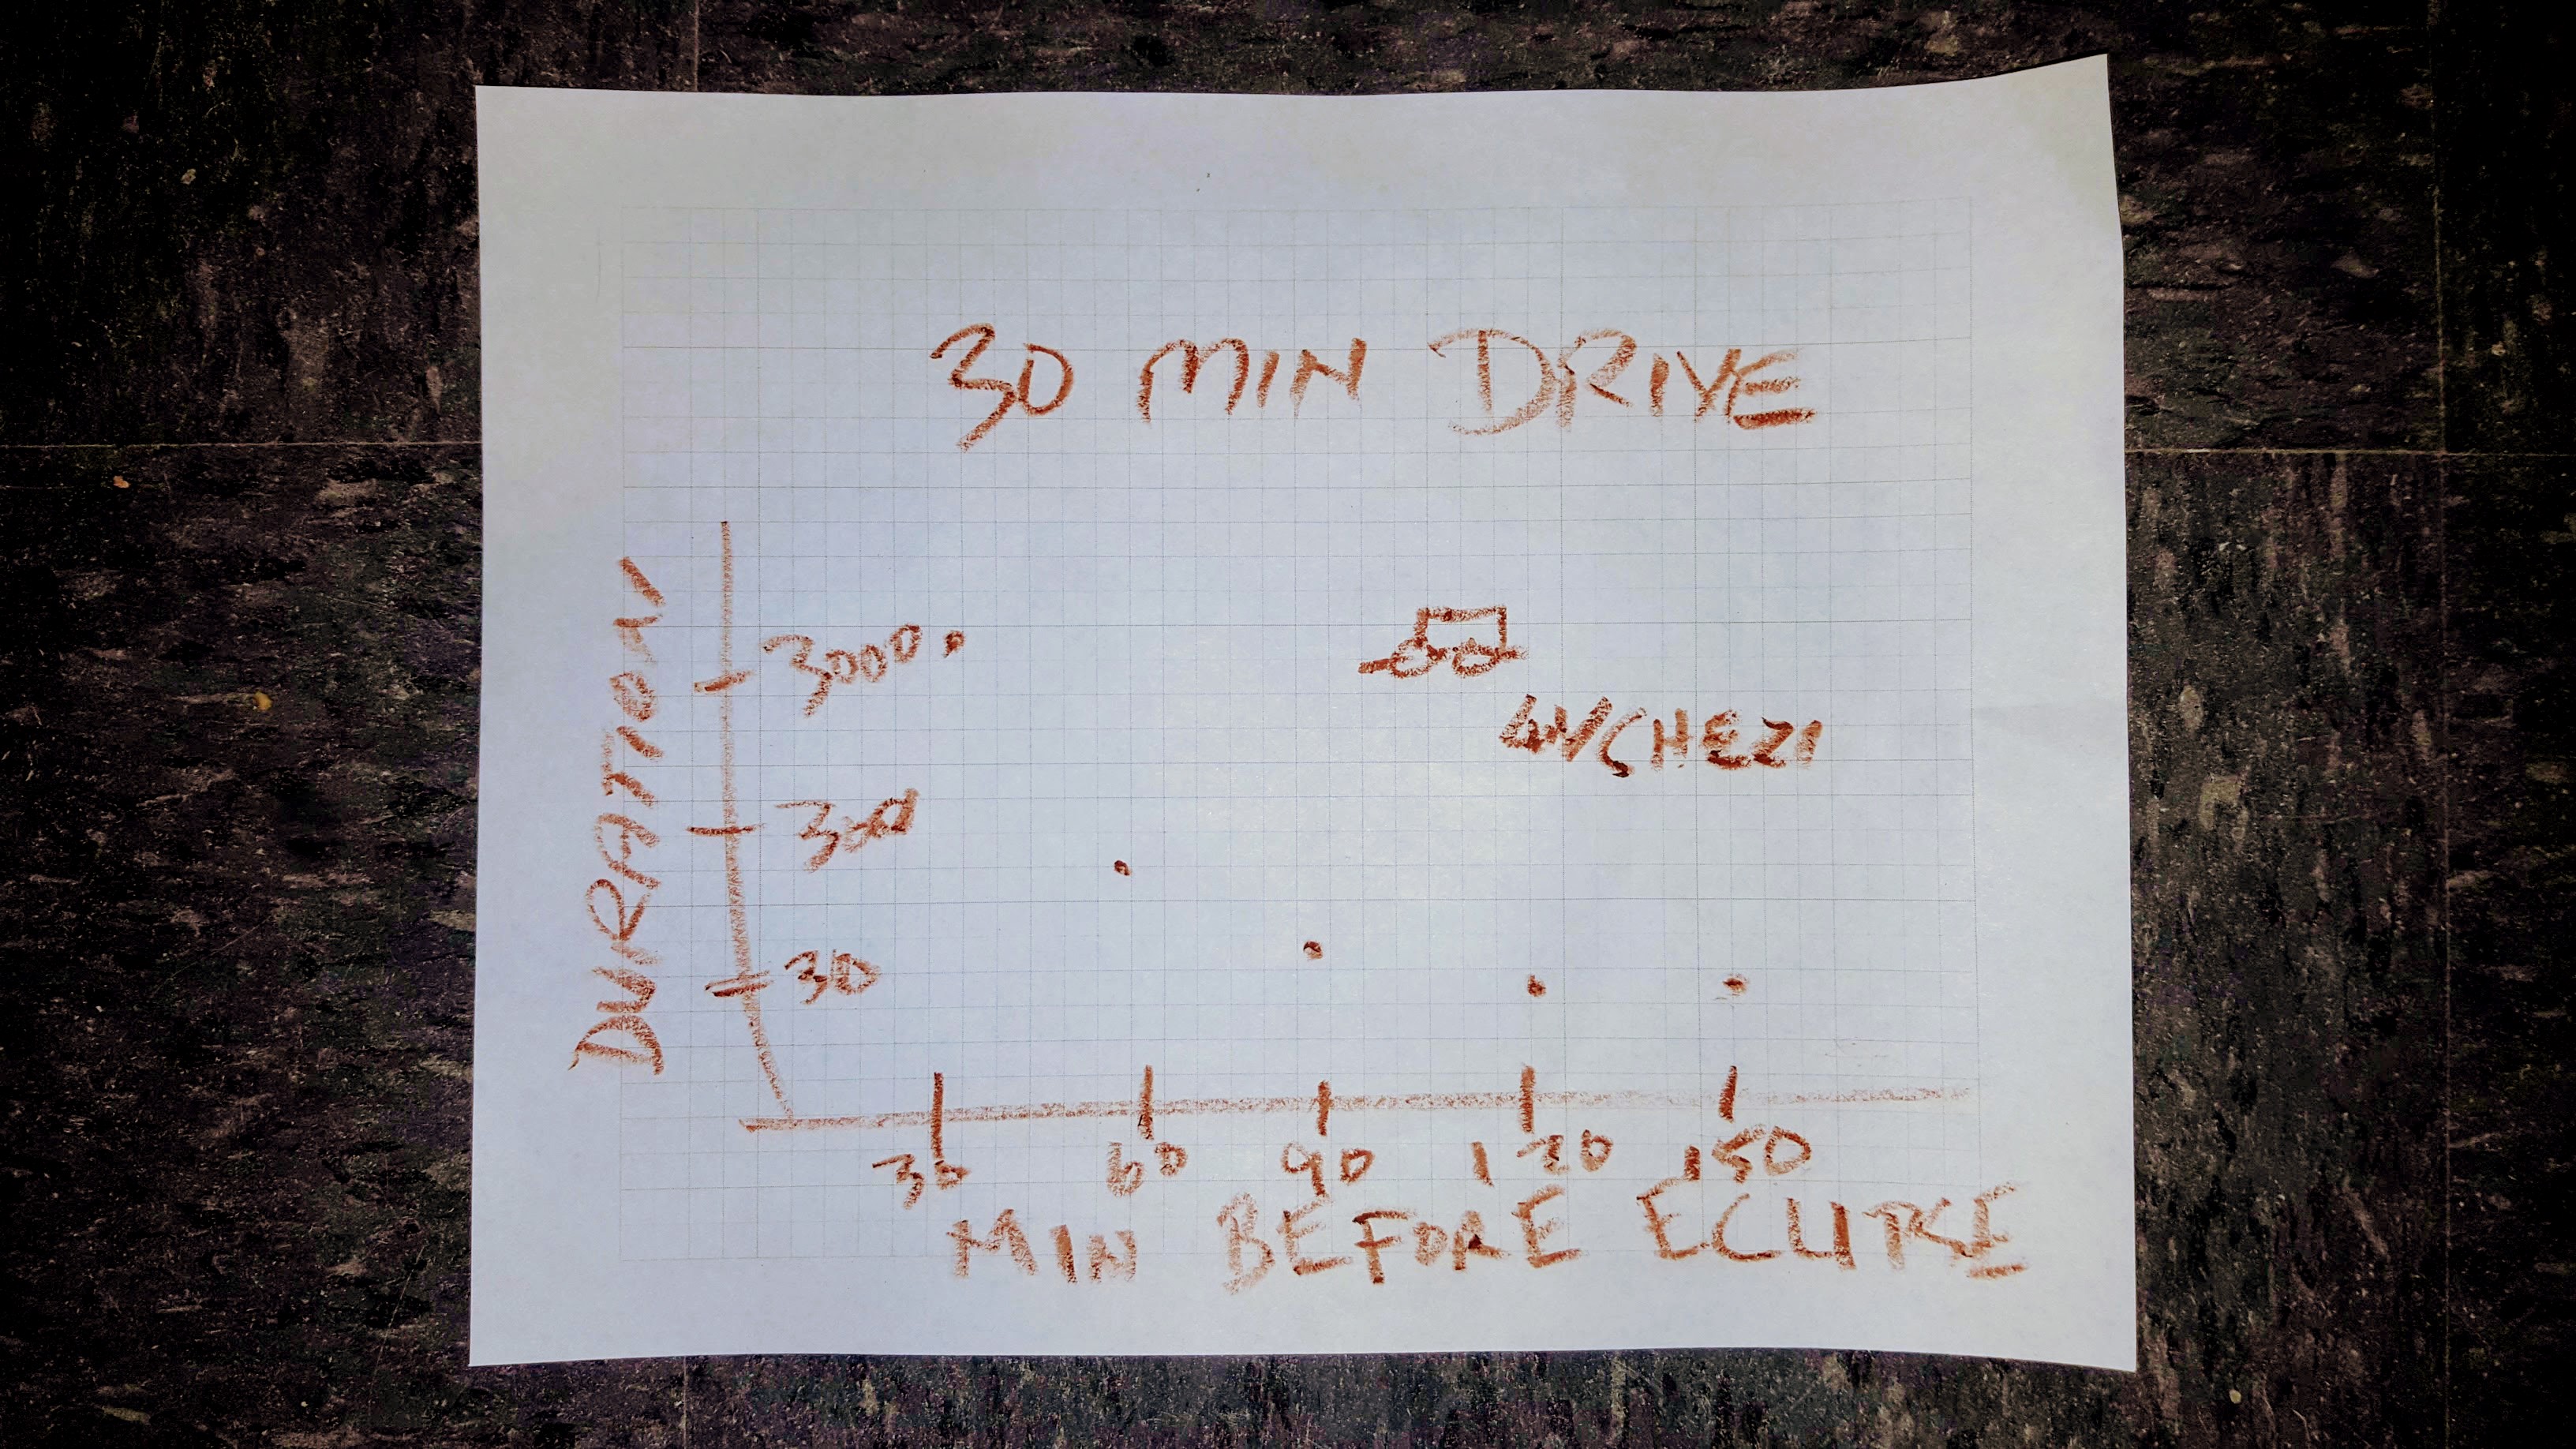 30 MIN DRIVE
DURATION
3000
300
30
30 60 90 120 150
MIN BEFORE ECLIPSE